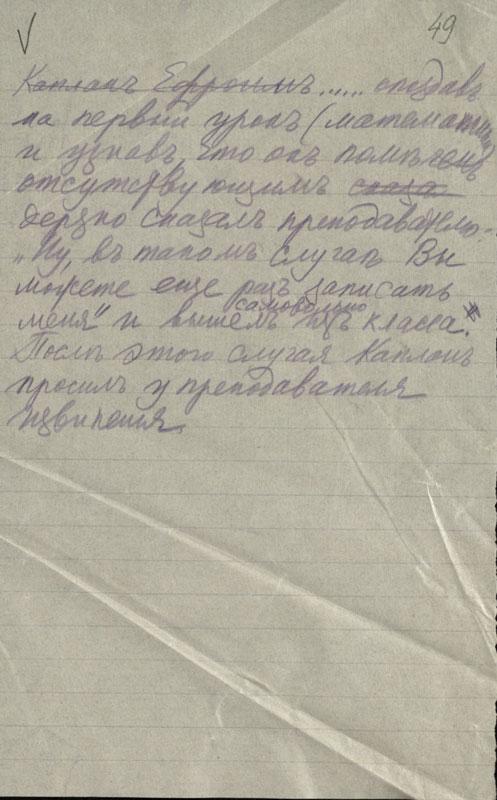 49
Капланъ Ефроимъ...... опоздавъ
на первый урокъ (математики)
и узнавъ, что онъ помѣченъ
отсутствующимъ сказа
дерзко сказалъ преподавателю:
„Ну, въ такомъ случаѣ Вы
можете еще разъ записать
самовольно
меня" и вышелъ изъ класса.
Послѣ этого случая Капланъ
просилъ у преподавателя
извиненія.